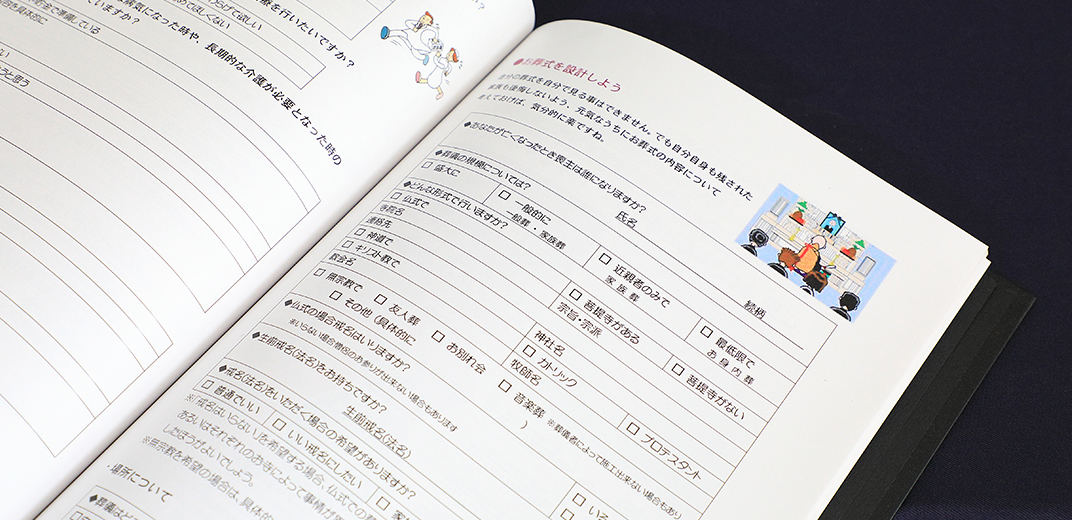 療を行いたいですか?
らげて欲しい
めてほしくない
は病気になった時や、長期的な介護が必要となった時の
ていますか?
容を具体的に
貯金で準備している
うと思う
●お葬式を設計しよう
自分の葬式を自分で見る事はできません。でも自分自身も残された
家族も後悔しないよう、元気なうちにお葬式の内容について
考えておけば、気分的に楽ですね。
◆あなたが亡くなったとき喪主は誰になりますか?
氏名
続柄
◆葬儀の規模については?
□ 盛大に
□ 一般的に
一般葬・家族葬
□ 近親者のみで
家族葬
□ 最低限で
お身内葬
◆どんな形式で行いますか?
□ 仏式で
□ 菩提寺がある
□ 菩提寺がない
寺院名
宗旨・宗派
連絡先
□ 神道で
神社名
□ キリスト教で
□ カトリック
□ プロテスタント
教会名
牧師名
□ 無宗教で
□ 友人葬
□ お別れ会
□ 音楽葬
※葬儀者によって施工出来ない場合もあり
□ その他(具体的に
)
◆仏式の場合戒名はいりますか?
※いらない場合僧侶のお参りが出来ない場合もあります
◆生前戒名(法名)をお持ちですか?
生前戒名(法名)
◆戒名(法名)をいただく場合の希望がありますか?
□ 普通でいい
□ いい戒名にしたい
※「戒名はいらない」を希望する場合、仏式での
あるいはそれぞれのお寺によって事情が
したほうがよいでしょう。
※無宗教を希望の場合は、具体的
・場所について
◆葬儀はど